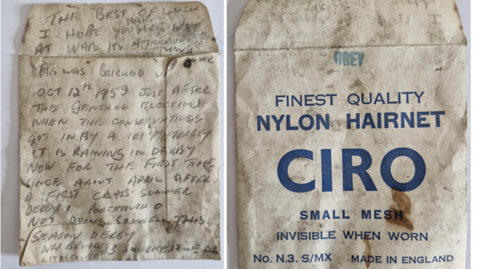 THE BEST OF LUCK
I HOPE YOU ARE NOT
AT WAR
THIS WAS BRICKED UP
OCT 12TH 1959 JUST AFTER
THE GENERAL ELECTION
WHEN THE CONSERVATIVES
GOT IN BY A 101 MAJORITY
IT IS RAINING IN DERBY
NOW FOR THE FIRST TIME
SINCE ABOUT APRIL AFTER
A FIRST CLASS SUMMER
DERBY 1 PORTSMOUTH 0
NOT DOING THIS
SEASON DERBY
GREY
FINEST QUALITY
NYLON HAIRNET
CIRO
SMALL MESH
INVISIBLE WHEN WORN
No. N.3. S/MX MADE IN ENGLAND